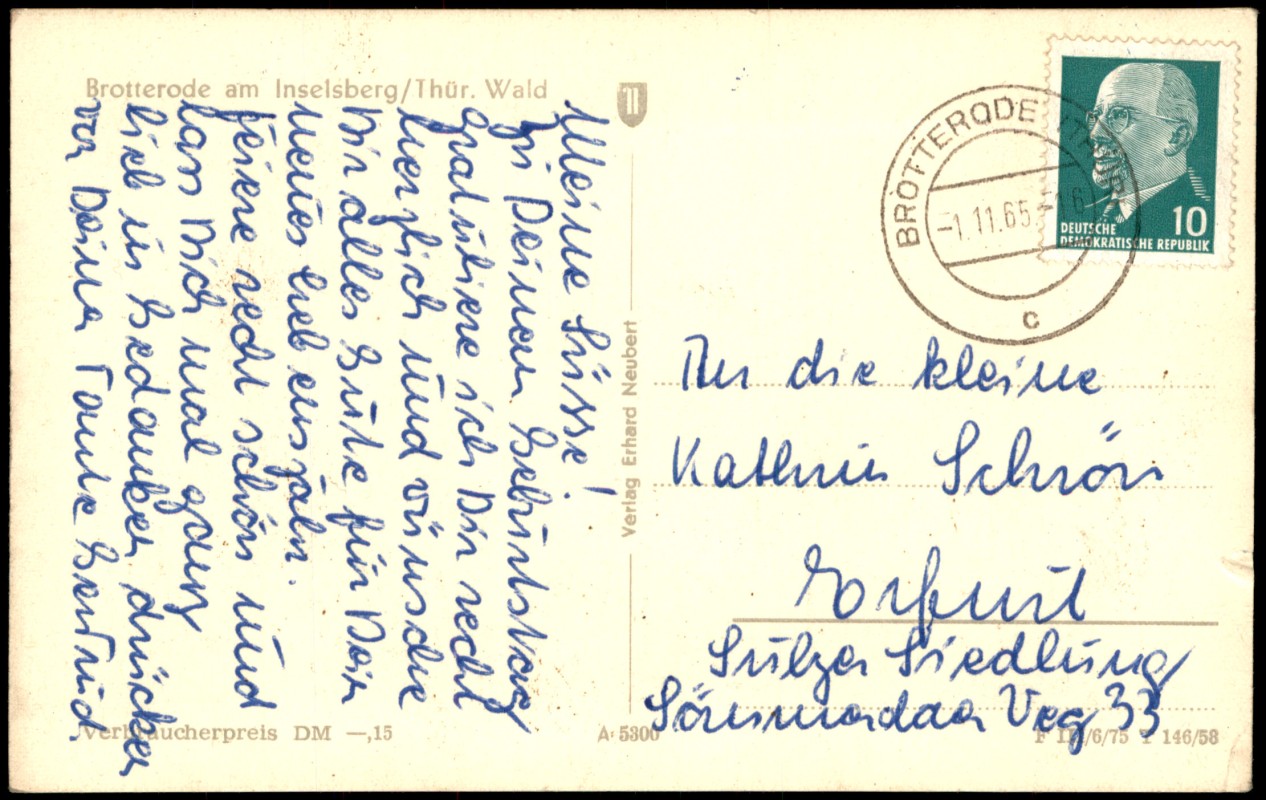 Brotterode am Inselsberg/Thür. Wald
Meine Süsse!
Zu Deinem Geburtstag
gratuliere ich Dir recht
herzlich und wünsche
Dir alles Gute für Dein
neues Lebensjahr.
Feiere recht schön und
lass Dich mal ganz
lieb in Gedanken drücken
von Deiner Tante Gertrud.
Verlag Erhard Neubert
BROTTERODE (THÜR)
-1.11.65.-16
c
10
DEUTSCHE
DEMOKRATISCHE REPUBLIK
An die kleine
Kathrin Schrön
Erfurt
Sulzer Siedlung
Sömmerdaer Weg 33
Verbraucherpreis DM —,15
A: 5300
/6/75 146/58